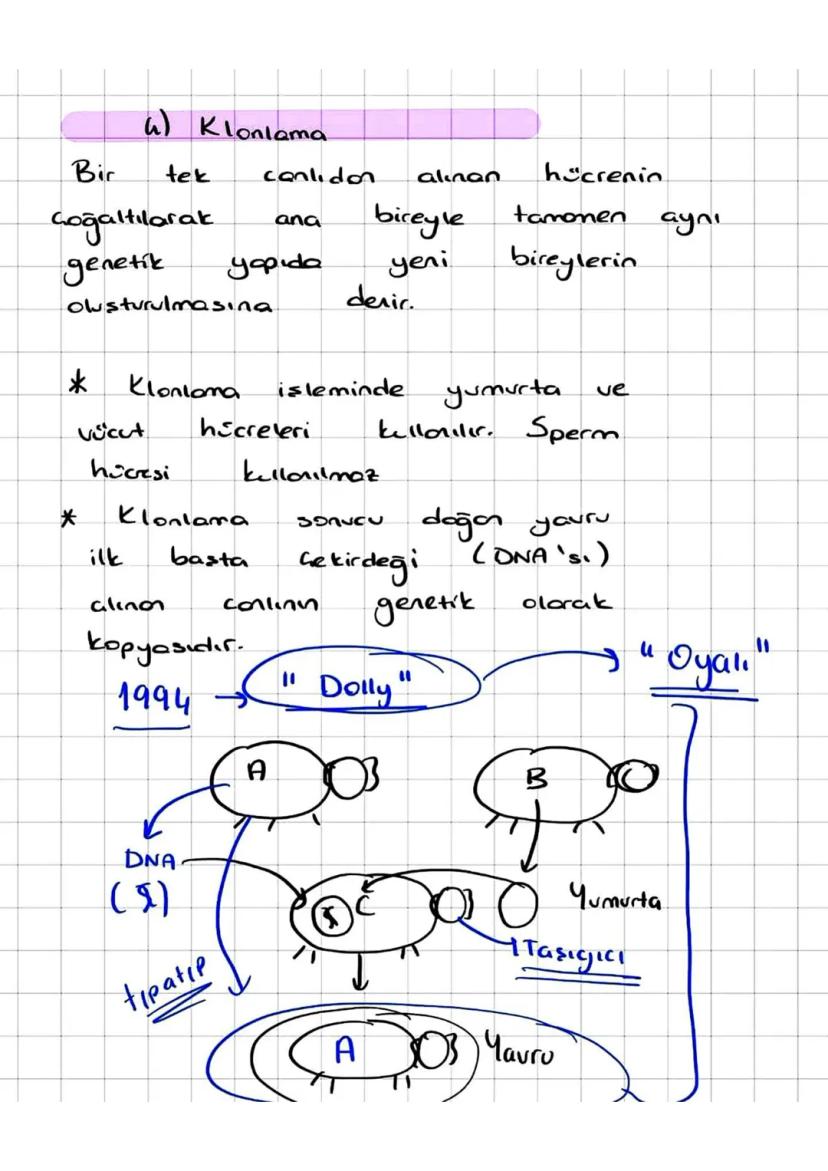 a) Klonlama
Bir tek canlıdan alınan hücrenin
çoğaltılarak ana bireyle tamamen aynı
genetik yapıda yeni bireylerin
oluşturulmasına denir.
* Klonlama işleminde yumurta ve
vücut hücreleri kullanılır. Sperm
hücresi kullanılmaz
* Klonlama sonucu doğan yavru
ilk başta çekirdeği (DNA'sı)
alınan canlının genetik olarak
kopyasıdır.
1994 → "Dolly" → "Oyalı"
A
B
DNA
C
Yumurta
Taşıyıcı
tıpatıp
A
Yavru